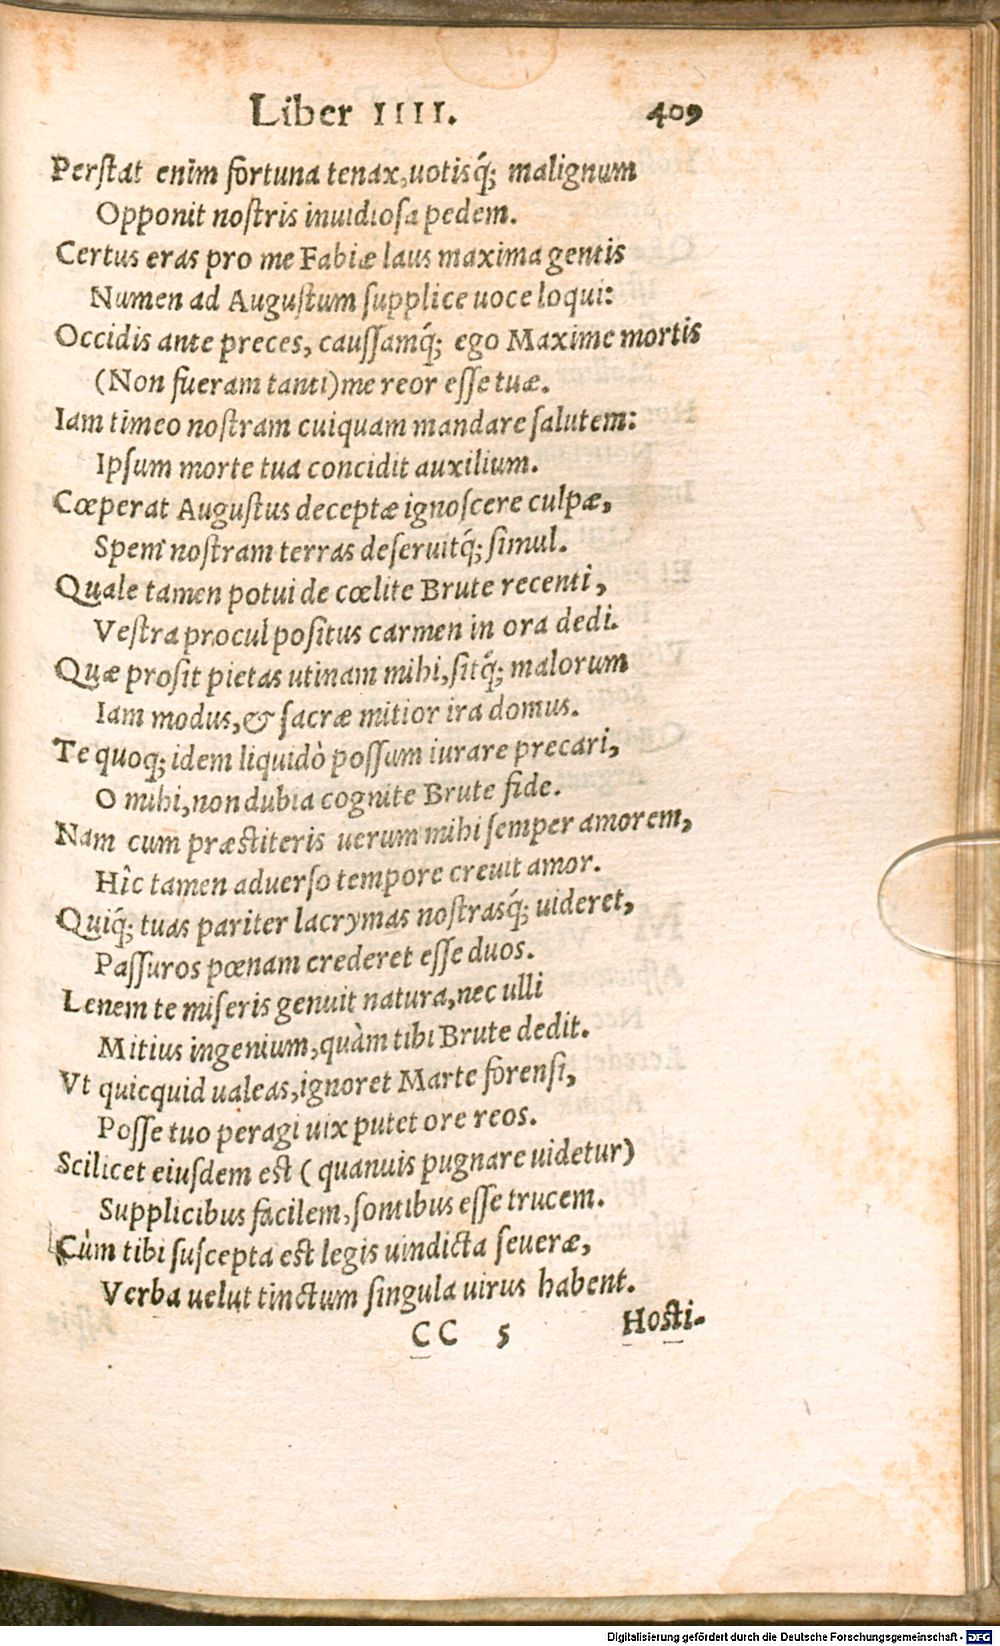 Liber IIII. 409
Perſtat enim fortuna tenax, uotisq́; malignum
Opponit noſtris inuidioſa pedem.
Certus eras pro me Fabiæ laus maxima gentis
Numen ad Auguſtum ſupplice uoce loqui:
Occidis ante preces, cauſſamq́; ego Maxime mortis
(Non fueram tanti) me reor eſſe tuæ.
Iam timeo noſtram cuiquam mandare ſalutem:
Ipſum morte tua concidit auxilium.
Cœperat Auguſtus deceptæ ignoſcere culpæ,
Spem noſtram terras deſeruitq́; ſimul.
Quale tamen potui de cœlite Brute recenti,
Veſtra procul poſitus carmen in ora dedi.
Quæ proſit pietas utinam mihi, ſitq́; malorum
Iam modus, & ſacræ mitior ira domus.
Te quoq; idem liquidò poſſum iurare precari,
O mihi, non dubia cognite Brute fide.
Nam cum præſtiteris uerum mihi ſemper amorem,
Hîc tamen aduerſo tempore creuit amor.
Quiq́; tuas pariter lacrymas noſtrasq́; uideret,
Paſſuros pœnam crederet eſſe duos.
Lenem te miſeris genuit natura, nec ulli
Mitius ingenium, quàm tibi Brute dedit.
Vt quicquid ualeas, ignoret Marte forenſi,
Poſſe tuo peragi uix putet ore reos.
Scilicet eiuſdem eſt (quanuis pugnare uidetur)
Supplicibus facilem, ſontibus eſſe trucem.
Cùm tibi ſuſcepta eſt legis uindicta ſeueræ,
Verba uelut tinctum ſingula uirus habent.
CC 5 Hoſti-
Digitalisierung gefördert durch die Deutsche Forschungsgemeinschaft - DFG